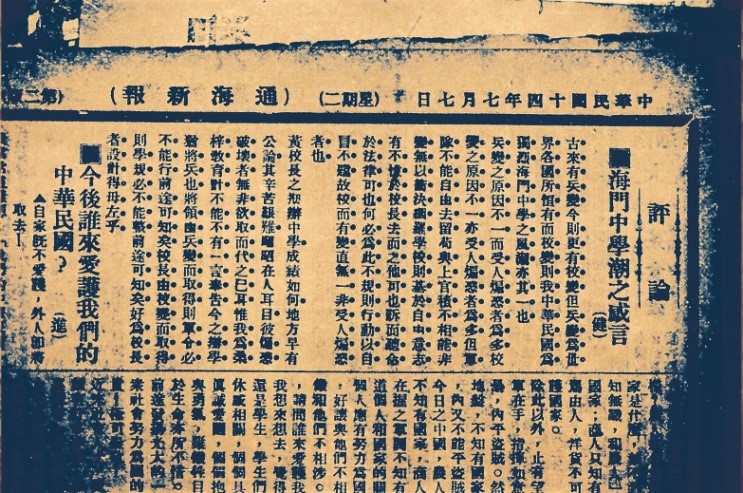 中華民國十四年七月七日
(星期二)
(通海新報)
第二
評論
■海門中學潮之感言
(健)
古來有兵變今則更有校變但兵變為世
界各國所恒有而校變則我中華民國為
獨烈海門中學之風潮亦其一也
兵變之原因不一而受人煽惑者為多校
變之原因不一亦受人煽惑者為多但軍
隊不能自由去留苟與上官積不相能非
變無以解決 學校則基於自由意志
有不慊於校長去而之他可也訴而聽命
於法律可也何必為此不規則行動以自
冒不韙故校而有變直無一非受人煽惑
者也
黃校長之 辦中學成績如何地方早有
公論其辛苦艱難昭昭在人耳目彼煽惑
破壞者無非欲取而代之已耳惟我為桑
梓教育計不能不有一言奉告今之辦學
將兵也將領由兵變而取得則軍令必
不能行前途可知矣校長由校變而取得
則學規必不能 前途可知矣好為校長
者設計得毋左乎
■今後誰來愛護我們的
中華民國?
(進)
▲自家既不愛護,外人卽將
取去!
家是什麼,
知無識,和
國家;商人只知有
由人,洋貨不可
護國家。
除此以外,止有望
軍在手,指揮如意
暴,內平盜賊。然
不知有國家
,內又不能平盜賊
今日之中國,農人
不知有國家,商人
在握之軍閥不知有
這個人和國家的關
個人應有努力為國
,好讓與他們不相
和他們不相涉。
,請問誰來愛護我
我想來想去,覺得
還是學生,學生們
休戚相關,個個具
真誠愛國,個個抱
與勇氣,雖犧牲目
於生命亦所不惜。
前途發揚光大的
衆社會努力為國的